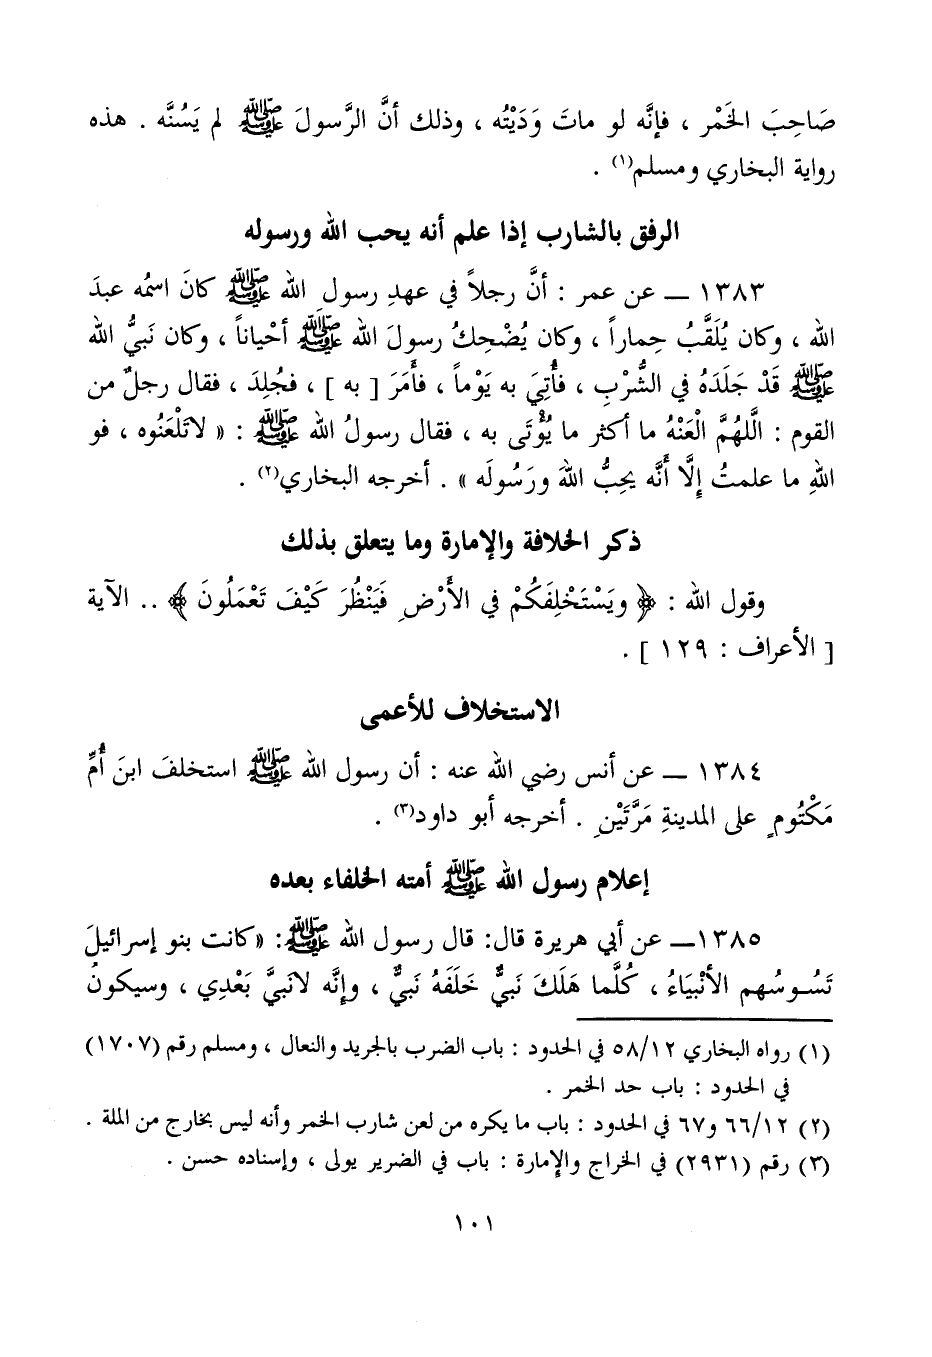 صَاحِبَ الخَمْر ، فإنَّه لو ماتَ وَدَيْتُه ، وذلك أنَّ الرَّسولَ ﷺ لم يَسُنَّه . هذه
رواية البخاري ومسلم(١) .
الرفق بالشارب إذا علم أنه يحب الله ورسوله
١٣٨٣ ــ عن عمر : أنَّ رجلاً في عهدِ رسول الله ﷺ كانَ اسمُه عبدَ
الله ، وكان يُلَقَّبُ حِماراً ، وكان يُضْحِكُ رسولَ الله ﷺ أحْياناً ، وكان نَبيُّ الله
ﷺ قَدْ جَلَدَهُ في الشُّرْبِ ، فأُتِيَ به يَوْماً ، فأَمَرَ [ به ] ، فجُلِدَ ، فقال رجلٌ من
القوم : الَّلهُمَّ الْعَنْهُ ما أكثر ما يُؤْتَى به ، فقال رسولُ الله ﷺ : « لاتَلْعَنُوه ، فو
اللهِ ما علمتُ إِلَّا أَنَّه يحِبُّ اللهَ ورَسُولَه » . أخرجه البخاري(٢) .
ذكر الخلافة والإمارة وما يتعلق بذلك
وقول الله : ﴿ ويَسْتَخْلِفَكُمْ في الأَرْضِ فَيَنْظُرَ كَيْفَ تَعْمَلُونَ ﴾ .. الآية
[ الأعراف : ١٢٩ ] .
الاستخلاف للأعمى
١٣٨٤ ــ عن أنس رضي الله عنه : أن رسول الله ﷺ استخلفَ ابنَ أُمِّ
مَكْتُومٍ على المدينةِ مَرَّتَيْنِ . أخرجه أبو داود(٣) .
إعلام رسول الله ﷺ أمته الخلفاء بعده
١٣٨٥ــ عن أبي هريرة قال: قال رسول الله ﷺ: «كانت بنو إسرائيلَ
تَسُوسُهم الأنْبيَاءُ ، كُلَّما هَلَكَ نَبيٌّ خَلَفَهُ نَبيٌّ ، وإنَّه لانَبيَّ بَعْدِي ، وسيكونُ
(١) رواه البخاري ٥٨/١٢ في الحدود : باب الضرب بالجريد والنعال ، ومسلم رقم (١٧٠٧)
في الحدود : باب حد الخمر .
(٢) ٦٦/١٢ و٦٧ في الحدود : باب ما يكره من لعن شارب الخمر وأنه ليس بخارج من الملة .
(٣) رقم (٢٩٣١) في الخراج والإمارة : باب في الضرير يولى ، وإسناده حسن .
١٠١